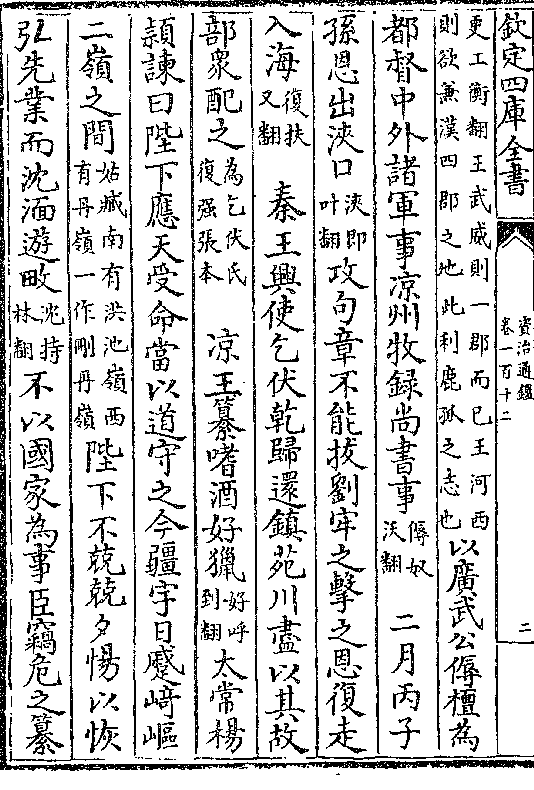 欽定四庫全書
資治通鑑
卷一百十二
二
更工衡翻王武威則一郡而已王河西
則欲兼漢四郡之地此利鹿孤之志也
以廣武公傉檀為
都督中外諸軍事凉州牧録尚書事
傉奴
沃翻
二月丙子
孫恩出浹口
浹即
叶翻
攻句章不能拔劉牢之擊之恩復走
入海
復扶
又翻
秦王興使乞伏乾歸還鎮苑川盡以其故
部衆配之
為乞伏氏
復强張本
凉王纂嗜酒好獵
好呼
到翻
太常楊
頴諫曰陛下應天受命當以道守之今疆宇日蹙﨑嶇
二嶺之間
姑臧南有洪池嶺西
有丹嶺一作刪丹嶺
陛下不兢兢夕惕以恢
弘先業而沈湎遊畋
沈持
林翻
不以國家為事臣竊危之纂